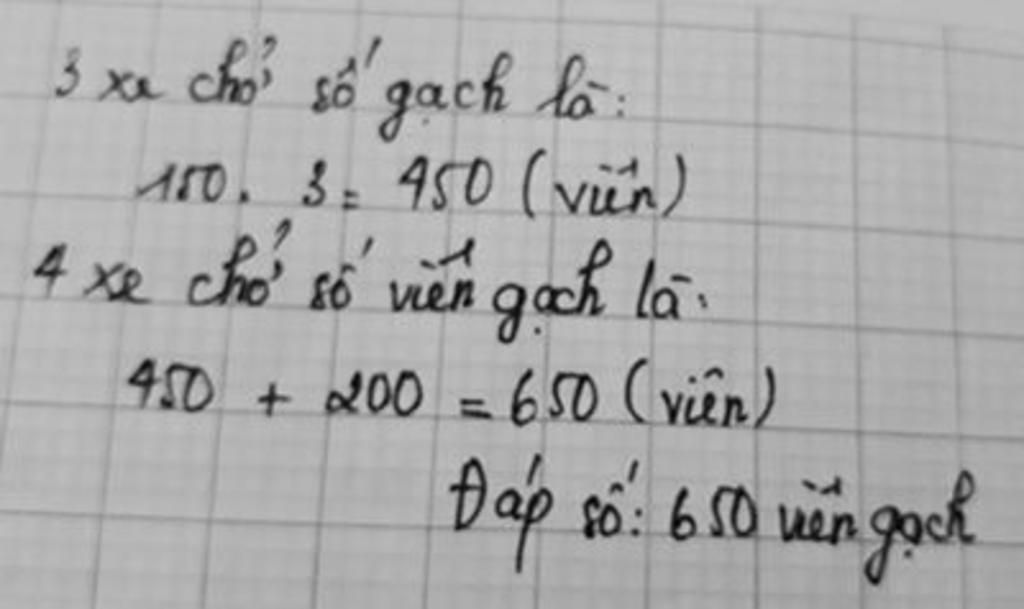 3 xe chở số gạch là:
150. 3 = 450 (viên)
4 xe chở số viên gạch là:
450 + 200 = 650 (viên)
Đáp số: 650 viên gạch